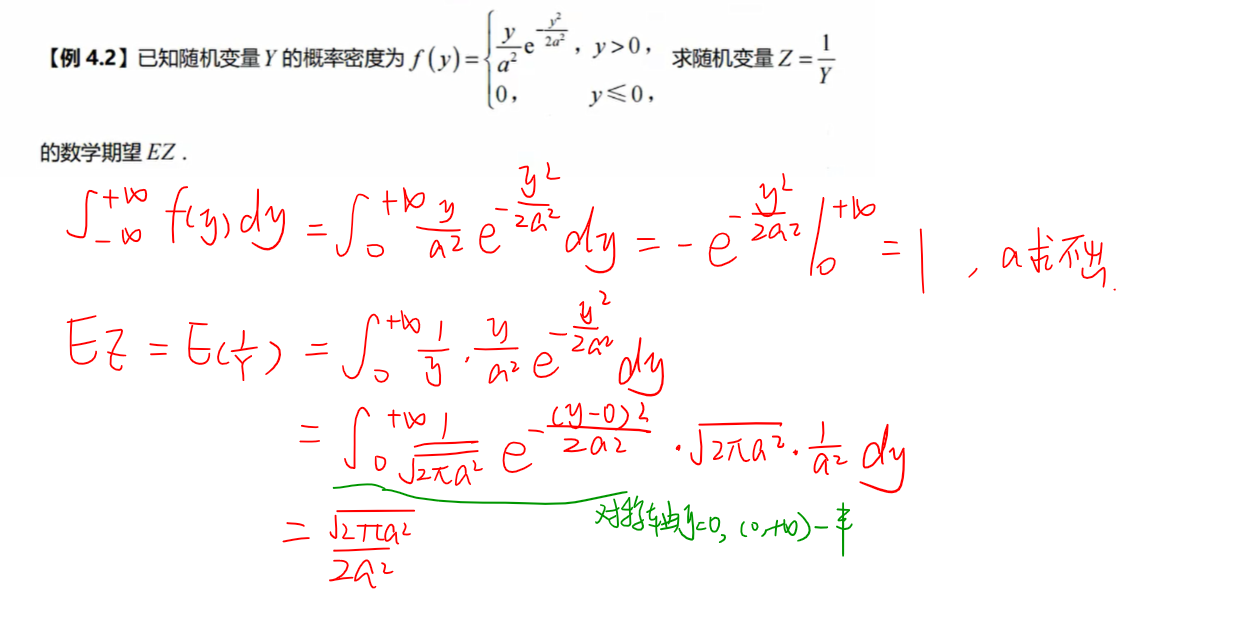 【例 4.2】已知随机变量 Y 的概率密度为 f(y)={ y/a² e^{-y²/2a²}, y>0, 0, y≤0, 求随机变量 Z=1/Y
的数学期望 EZ.
∫_{-∞}^{+∞} f(y)dy = ∫_0^{+∞} y/a² e^{-y²/2a²} dy = -e^{-y²/2a²} |_0^{+∞} = 1, a求不出.
EZ = E(1/Y) = ∫_0^{+∞} 1/y · y/a² e^{-y²/2a²} dy
= ∫_0^{+∞} 1/√(2πa²) e^{-(y-0)²/2a²} · √(2πa²) · 1/a² dy
对称轴y=0, (0,+∞)一半
= √(2πa²)/2a²